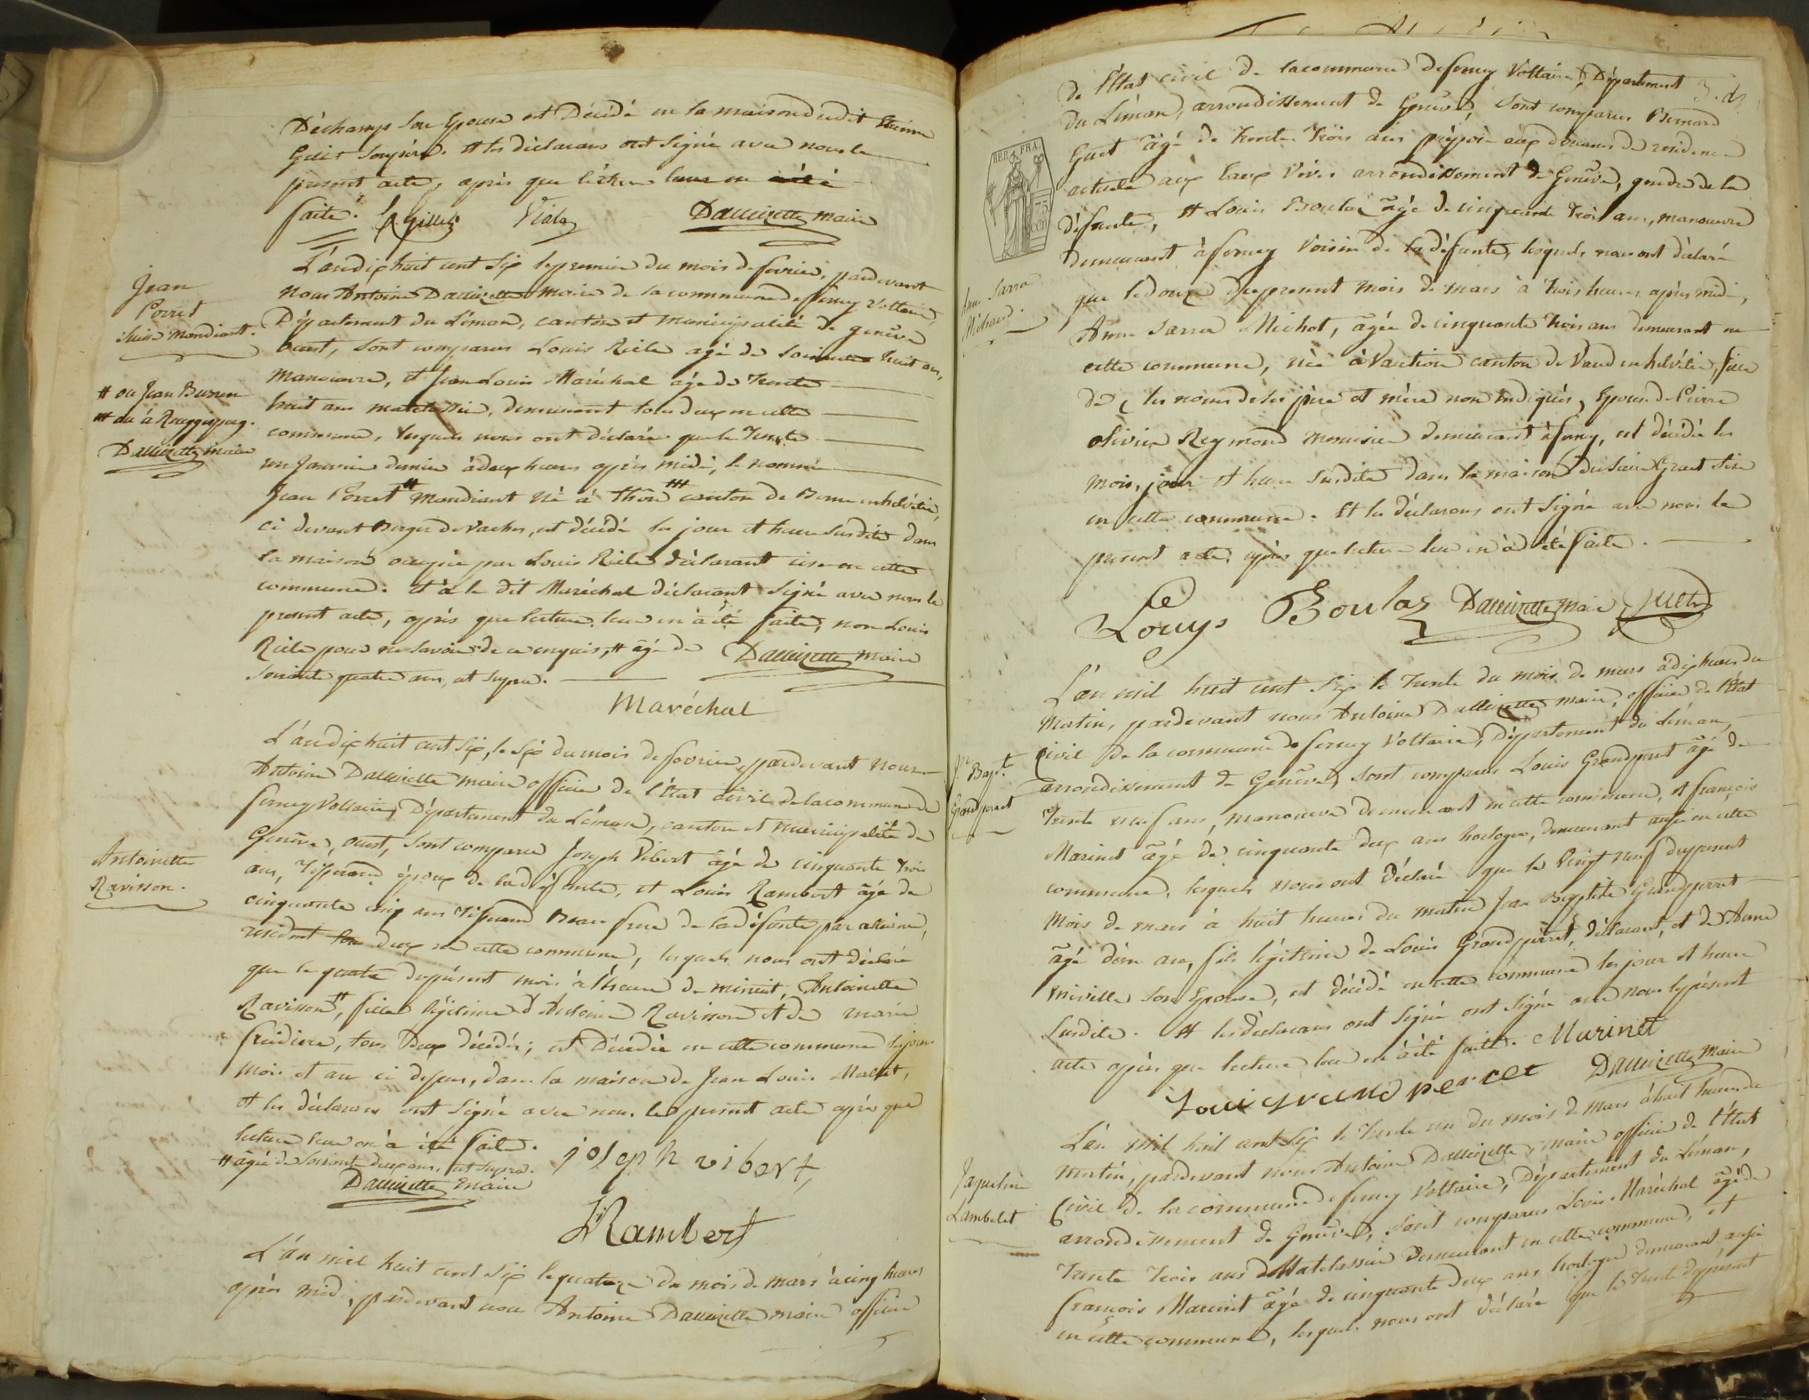 Déchamps son Epouse est Décédé en la maison dudit Etienne
et les déclarans ont signé avec nous le
présent acte, après que lecture leur en
faite. Dallizette maire
L'an dix huit cent six le premier du mois de fevrier, pardevant
nous Antoine Dallizette maire de la commune de ferney Voltaire,
Département du Léman, canton et municipalité de genève
ouest, sont comparus Louis Riele agé de soixante huit ans,
manoeuvre, et Jean Louis Maréchal age de trente
huit ans matelassier, demeurant tous deux en cette
commune, lesquels nous ont déclaré que le trente
un Janvier dernier à deux heures après midi, le nommé
Jean Porret # mandiant né à ### canton de Berne en helvétie,
ci devant Berger de Vaches, est décédé les jour et heure susdites dans
la maison occupée par Louis Riele déclarant sise en cette
commune: et à le dit Maréchal déclarant signé avec nous le
présent acte, après que lecture leur en à été faite, non Louis
Riele pour ne savoir de ce enquis, # agé de Dallizette maire
soixante quatre ans, ut supra.
Maréchal
Jean
Porret
Suisse Mandiant.
# ou Jean
Dallizette maire
L'an dix huit cent six, le six du mois de fevrier pardevant nous
Antoine Dallizette maire officier de l'Etat civil de la commune de
ferney Voltaire, Département du Léman, canton et municipalité de
Genève, ouest, sont comparu Joseph Vibert âgé de cinquante trois
ans, Tisserand époux de la défunte, et Louis Rambert âgé de
cinquante cinq ans Tisserand Beau frere de la défunte par alliance,
residant tous deux en cette commune, lesquels nous ont déclaré
que le quatre du présent mois à l'heure de minuit, Antoinette
Ravisson #, fille légitime d'Antoine Ravisson et de marie
tous deux décédés; est Décédée en cette commune les jour
mois et an ci dessus, dans la maison de Jean Louis
et les déclarans ont signé avec nous le présent acte après que
lecture leur en à été faite. joseph vibert
# agée de soixante deux ans, ut supra.
Dallizette maire
Rambert
Antoinette
Ravisson.
L'an mil huit cent six le quatorze du mois de mars à cinq heures
après midi, pardevant nous Antoine Dallizette maire officier
de l'Etat civil de la commune de ferney Voltaire, Département
du Léman, arrondissement de Genève, sont comparus Bernard
Guet âgé de trente trois ans préposé aux douanes de residence
actuelle aux Eaux Vives arrondissement de Genève, gendre de la
défunte, et Louis Boulaz âgé de cinquante trois ans, manoeuvre
demeurant à ferney Voisin de la défunte, lesquels nous ont déclaré
que le douze du présent mois de mars à trois heures après midi,
Anne Sarra Michot, âgée de cinquante trois ans demeurant en
cette commune, née à Vaulion canton de Vaud en helvétie, fille
de (les noms de ses père et mère non indiqués, Epouse de Pierre
olivier Reymond menuisier demeurant à ferney, est décédée les
mois, jour et heure susdites dans la maison du sieur
en cette commune. Et les déclarans ont signé avec nous le
présent acte, après que lecture leur en à été faite.
Louys Boulaz Dallizette maire Guet
REP. FRA.
L'an mil huit cent six le trente du mois de mars à dix heures du
matin, pardevant nous Antoine Dallizette maire, officier de l'Etat
Civil de la commune de ferney Voltaire, Département du Léman,
arrondissement de Genève, sont comparus Louis Grandperret âgé de
trente neuf ans, manoeuvre demeurant en cette commune, et françois
Marinet âgé de cinquante deux ans horloger, demeurant aussi en cette
commune, lesquels nous ont déclaré que le vingt neuf du présent
mois de mars à huit heures du matin Jean Baptiste Grandperret
âgé d'un an, fils légitime de Louis Grandperret, déclarant, et de Anne
son Epouse, est décédé en cette commune les jour et heure
susdite. Et les déclarans ont signé ont signé avec nous le présent
acte après que lecture leur en à été faite. Marinet
Louis grand perret Dallizette maire
Jn Bapt.te
Grandperret
L'an mil huit cent six le trente un du mois de mars à huit heures du
matin, pardevant nous Antoine Dallizette, maire officier de l'Etat
Civil de la commune de ferney Voltaire, Département du Léman,
arrondissement de Genève, sont comparus Louis Maréchal âgé de
trente trois ans Matelassier demeurant en cette commune, et
françois Marinet âgé de cinquante deux ans horloger demeurant aussi
en cette commune, lesquels nous ont déclaré que le trente du présent
Jaqueline
Lambelet